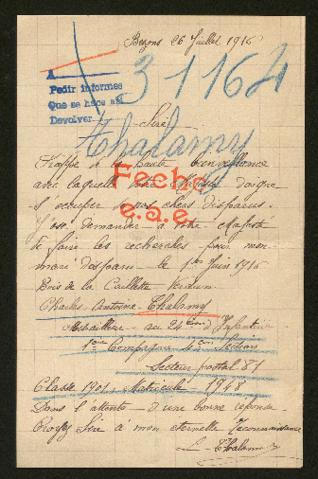 Bezons 26 Juillet 1916
A
Pedir informes
Que se hace así
Devolver
31164
Sire
Thalamy
Frappé de la haute bienveillance
avec laquelle votre Majesté daigne
s'occuper de nos chers disparus.
J'ose demander à votre Majesté
de faire les recherches pour mon
mari disparu le 1er Juin 1916
Bois de la Caillette Verdun
Fecho
e.s.e
Charles Antoine Thalamy
au 24ème Infanterie
1ère Compagnie 4ème Section
Secteur postal 81
Classe 1901 Matricule 1948
Dans l'attente d'une bonne réponse
Croyez Sire à mon éternelle reconnaissance
Thalamy